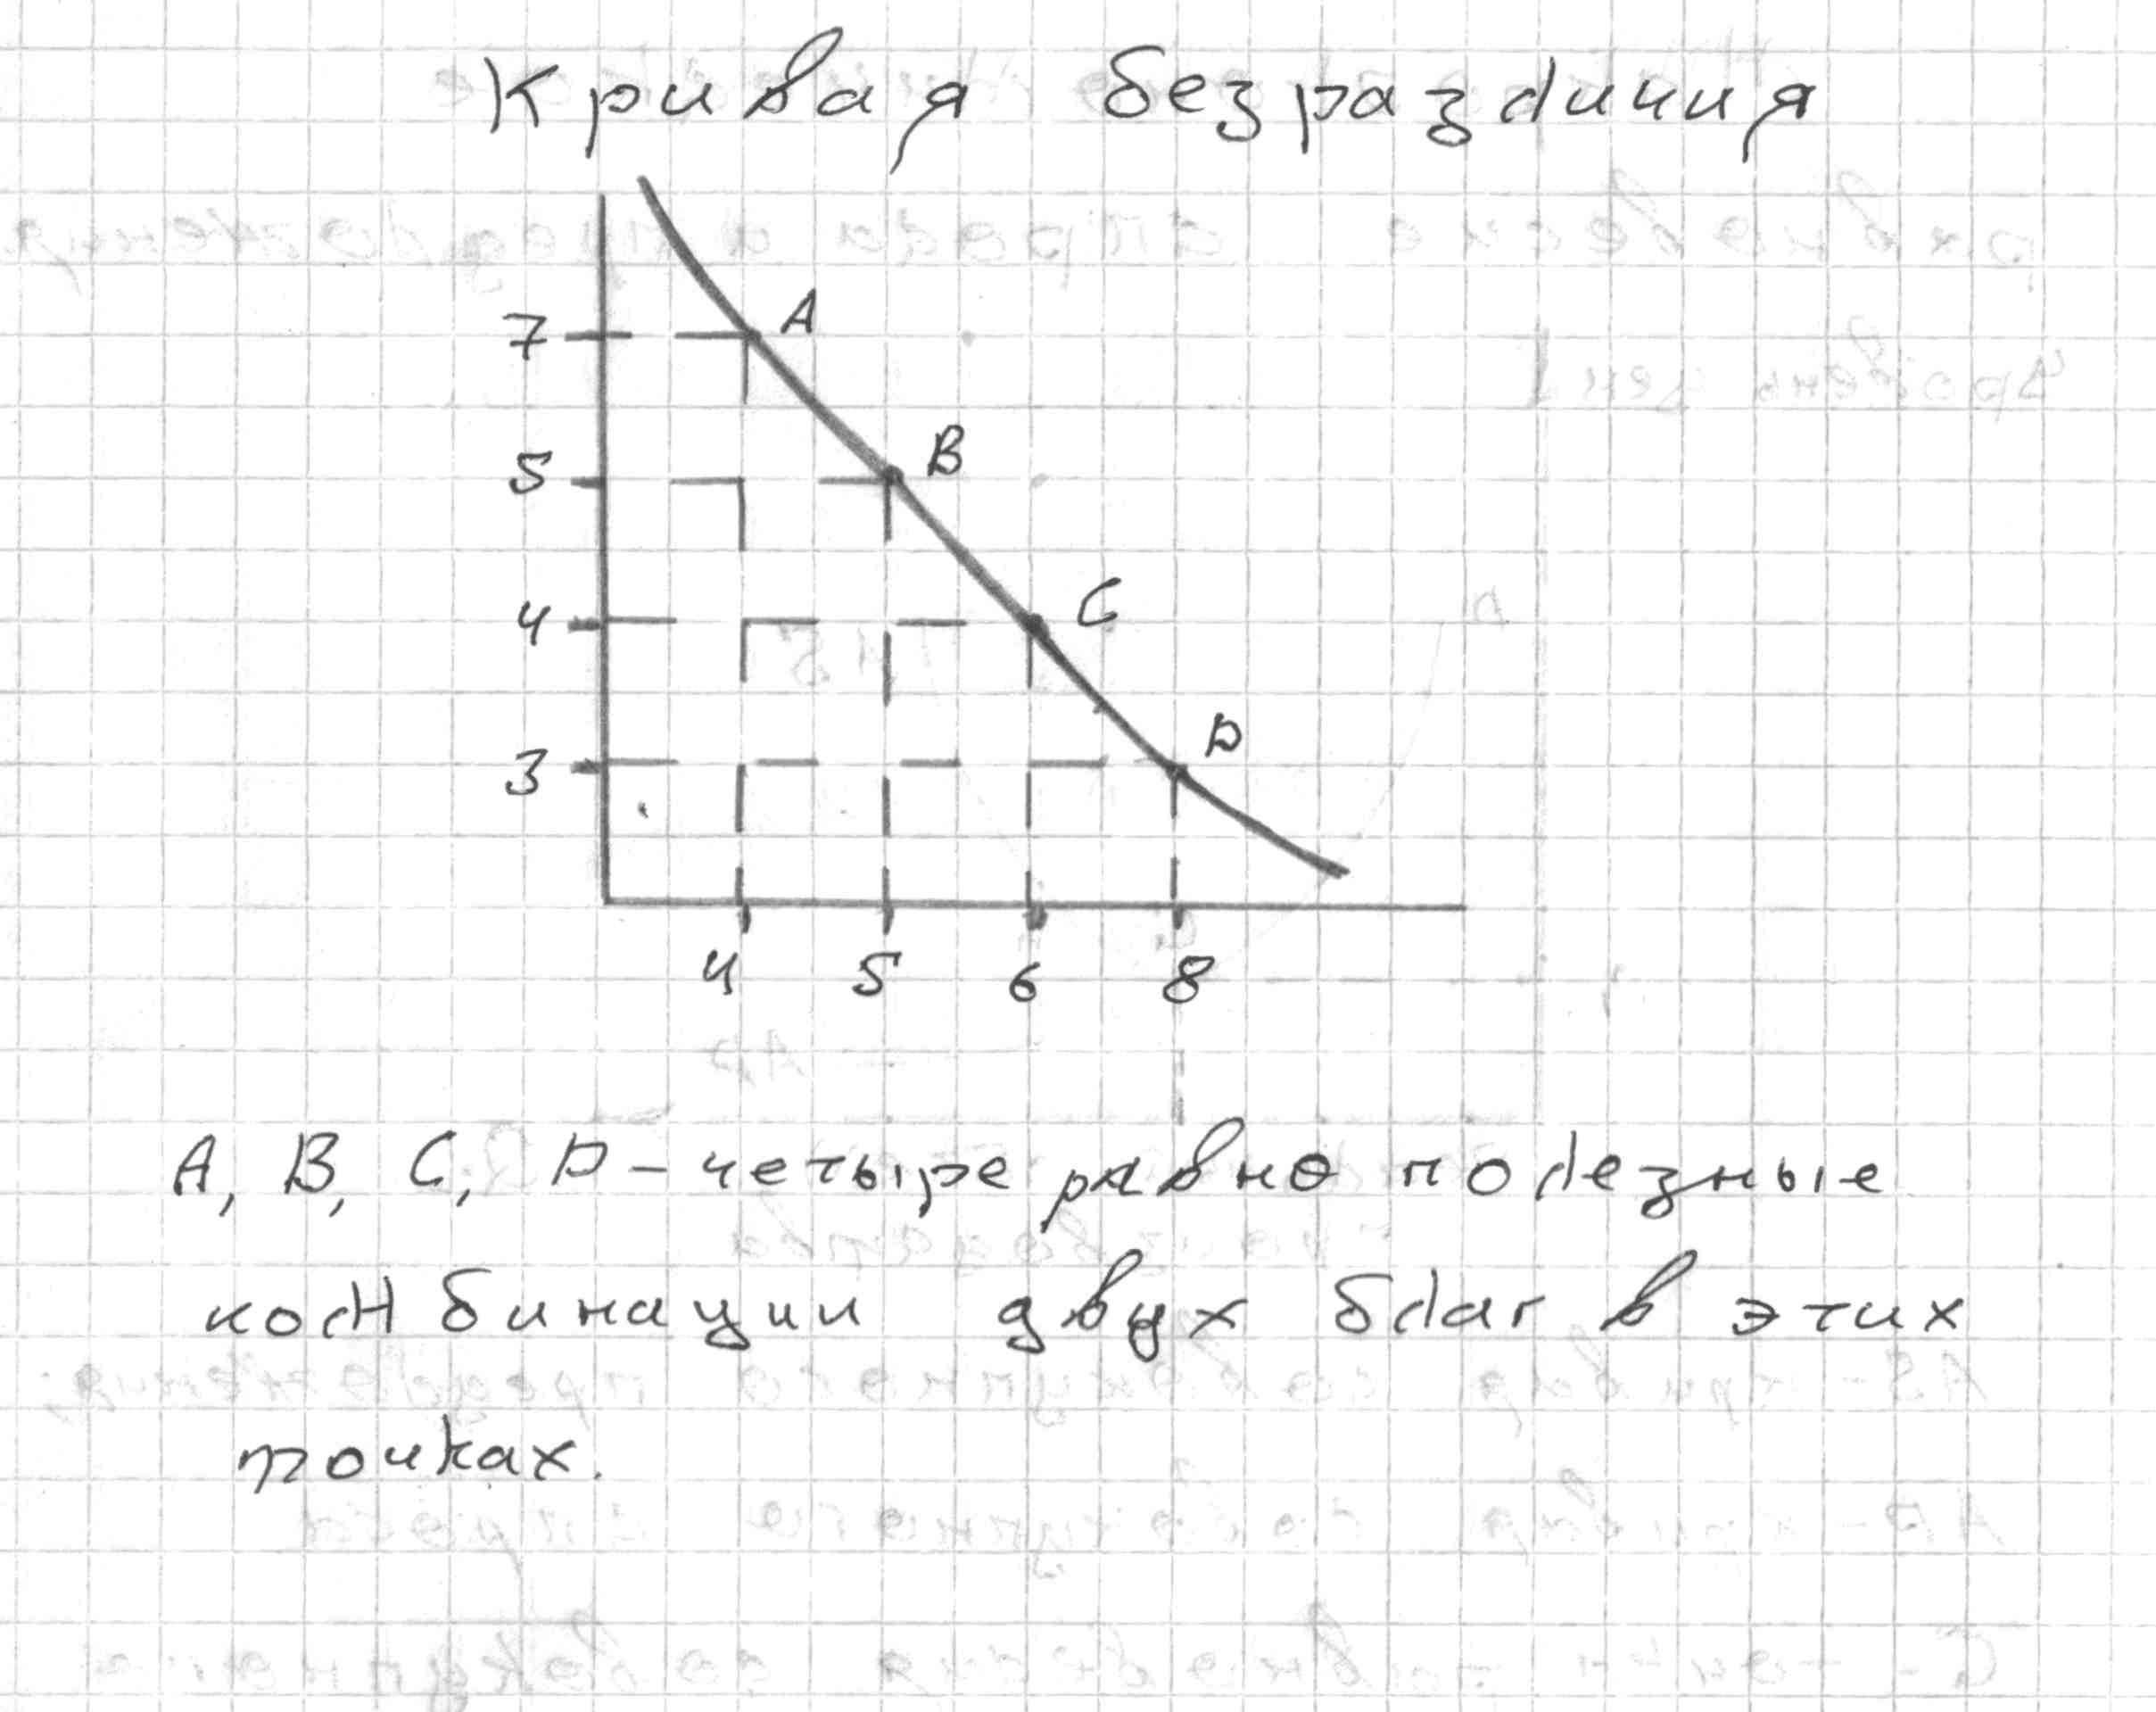 Кривая безразличия
7
A
5
B
4
C
3
D
4 5 6 8
A, B, C, D - четыре равно полезные
комбинации двух благ в этих
точках.